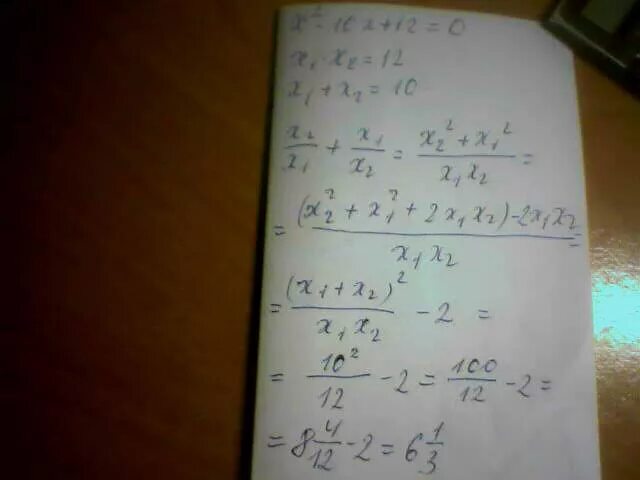 x² - 10x + 12 = 0
x₁ · x₂ = 12
x₁ + x₂ = 10
x₂/x₁ + x₁/x₂ = (x₂² + x₁²)/(x₁x₂) =
= ((x₂² + x₁² + 2x₁x₂) - 2x₁x₂)/(x₁x₂) =
= (x₁ + x₂)²/(x₁x₂) - 2 =
= 10²/12 - 2 = 100/12 - 2 =
= 8 4/12 - 2 = 6 1/3